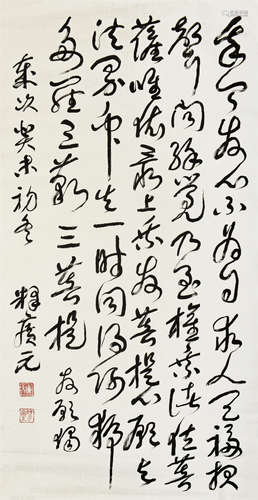 我今發心不為自求人天福報
聲聞緣覺乃至權乘諸位菩
薩唯依最上乘發菩提心願与
法界眾生一時同得阿耨
多羅三藐三菩提 發願
歲次癸未初冬 釋廣元